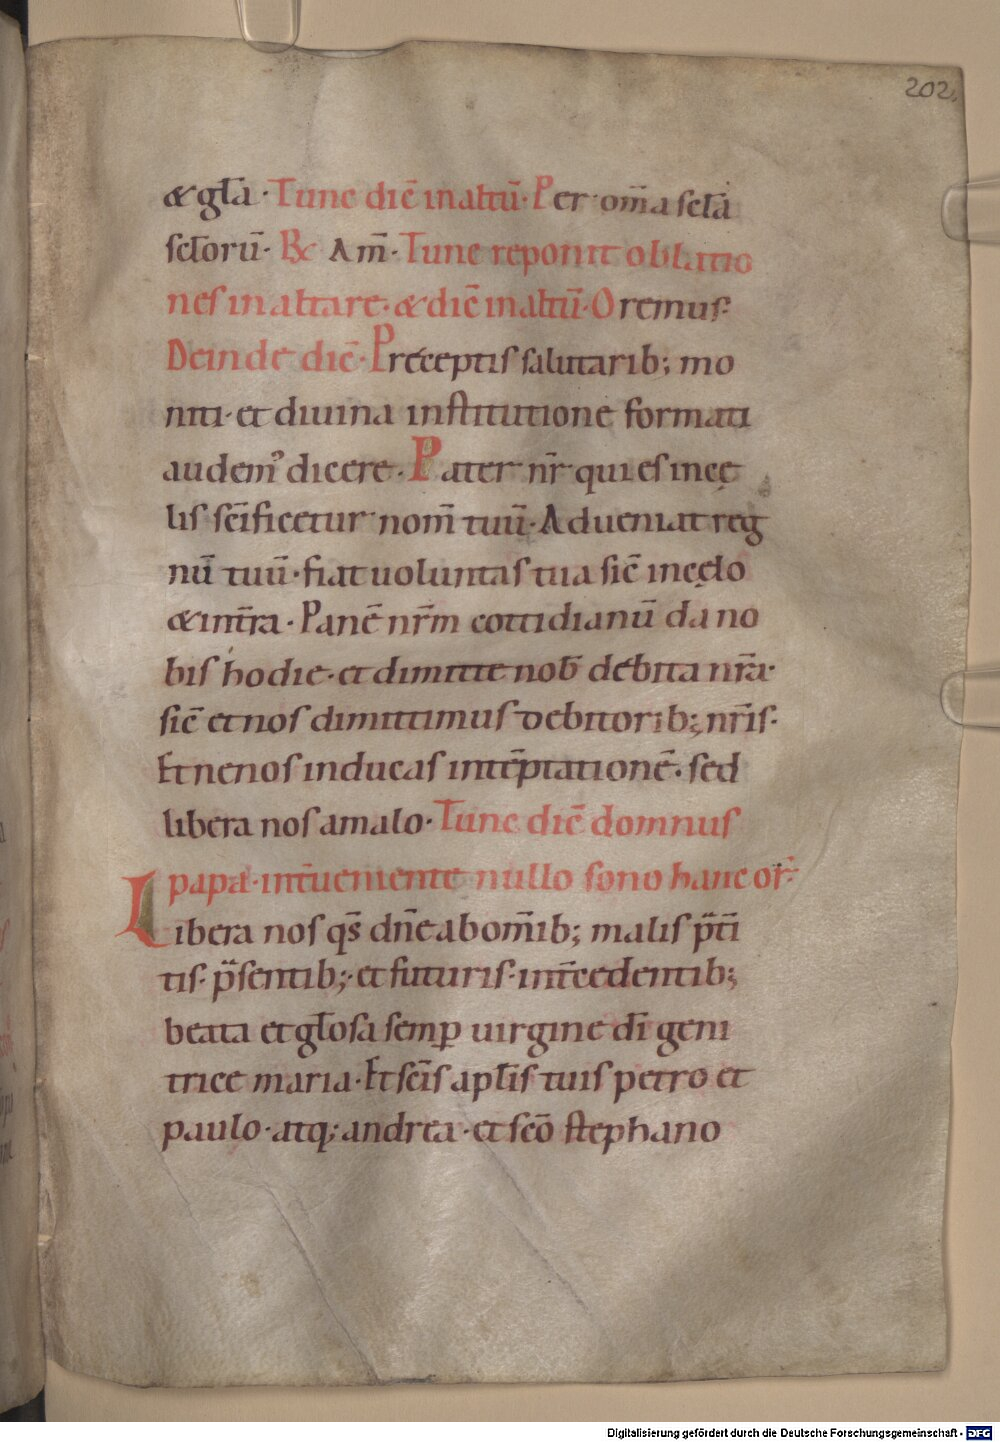 202.
& gl̄a · Tunc dic̄ in altū · Per om̄a secl̄a
secl̄orū · R̄ Am̄ · Tunc reponit oblatio
nes in altare · & dic̄ in altū · Oremus
Deinde dic̄ · Preceptis salutarib; mo
niti · et diuina institutione formati
audem᾽ dicere · Pater nr̄ qui es in cę
lis sc̄ificetur nom̄ tuū · Adueniat reg
nū tuū · fiat uoluntas tua sic̄ in cęlo
& in tr̄a · Panē nr̄m cottidianū da no
bis hodie · et dimitte nob̄ debita nr̄a ·
sic̄ et nos dimittimus debitorib; nr̄is ·
Et ne nos inducas in tēptationē · sed
libera nos a malo · Tunc dic̄ domnus
papa · int̄ueniente nullo sono hanc or̄ ·
Libera nos qs̄ dn̄e ab om̄ib; malis p̄ti
tis · p̄sentib; · et futuris · int̄cedentib;
beata et gl̄osa semp̱ uirgine dī geni
trice maria · Et sc̄is apl̄is tuis petro et
paulo · atq; andrea · et sc̄o stephano
Digitalisierung gefördert durch die Deutsche Forschungsgemeinschaft - DFG